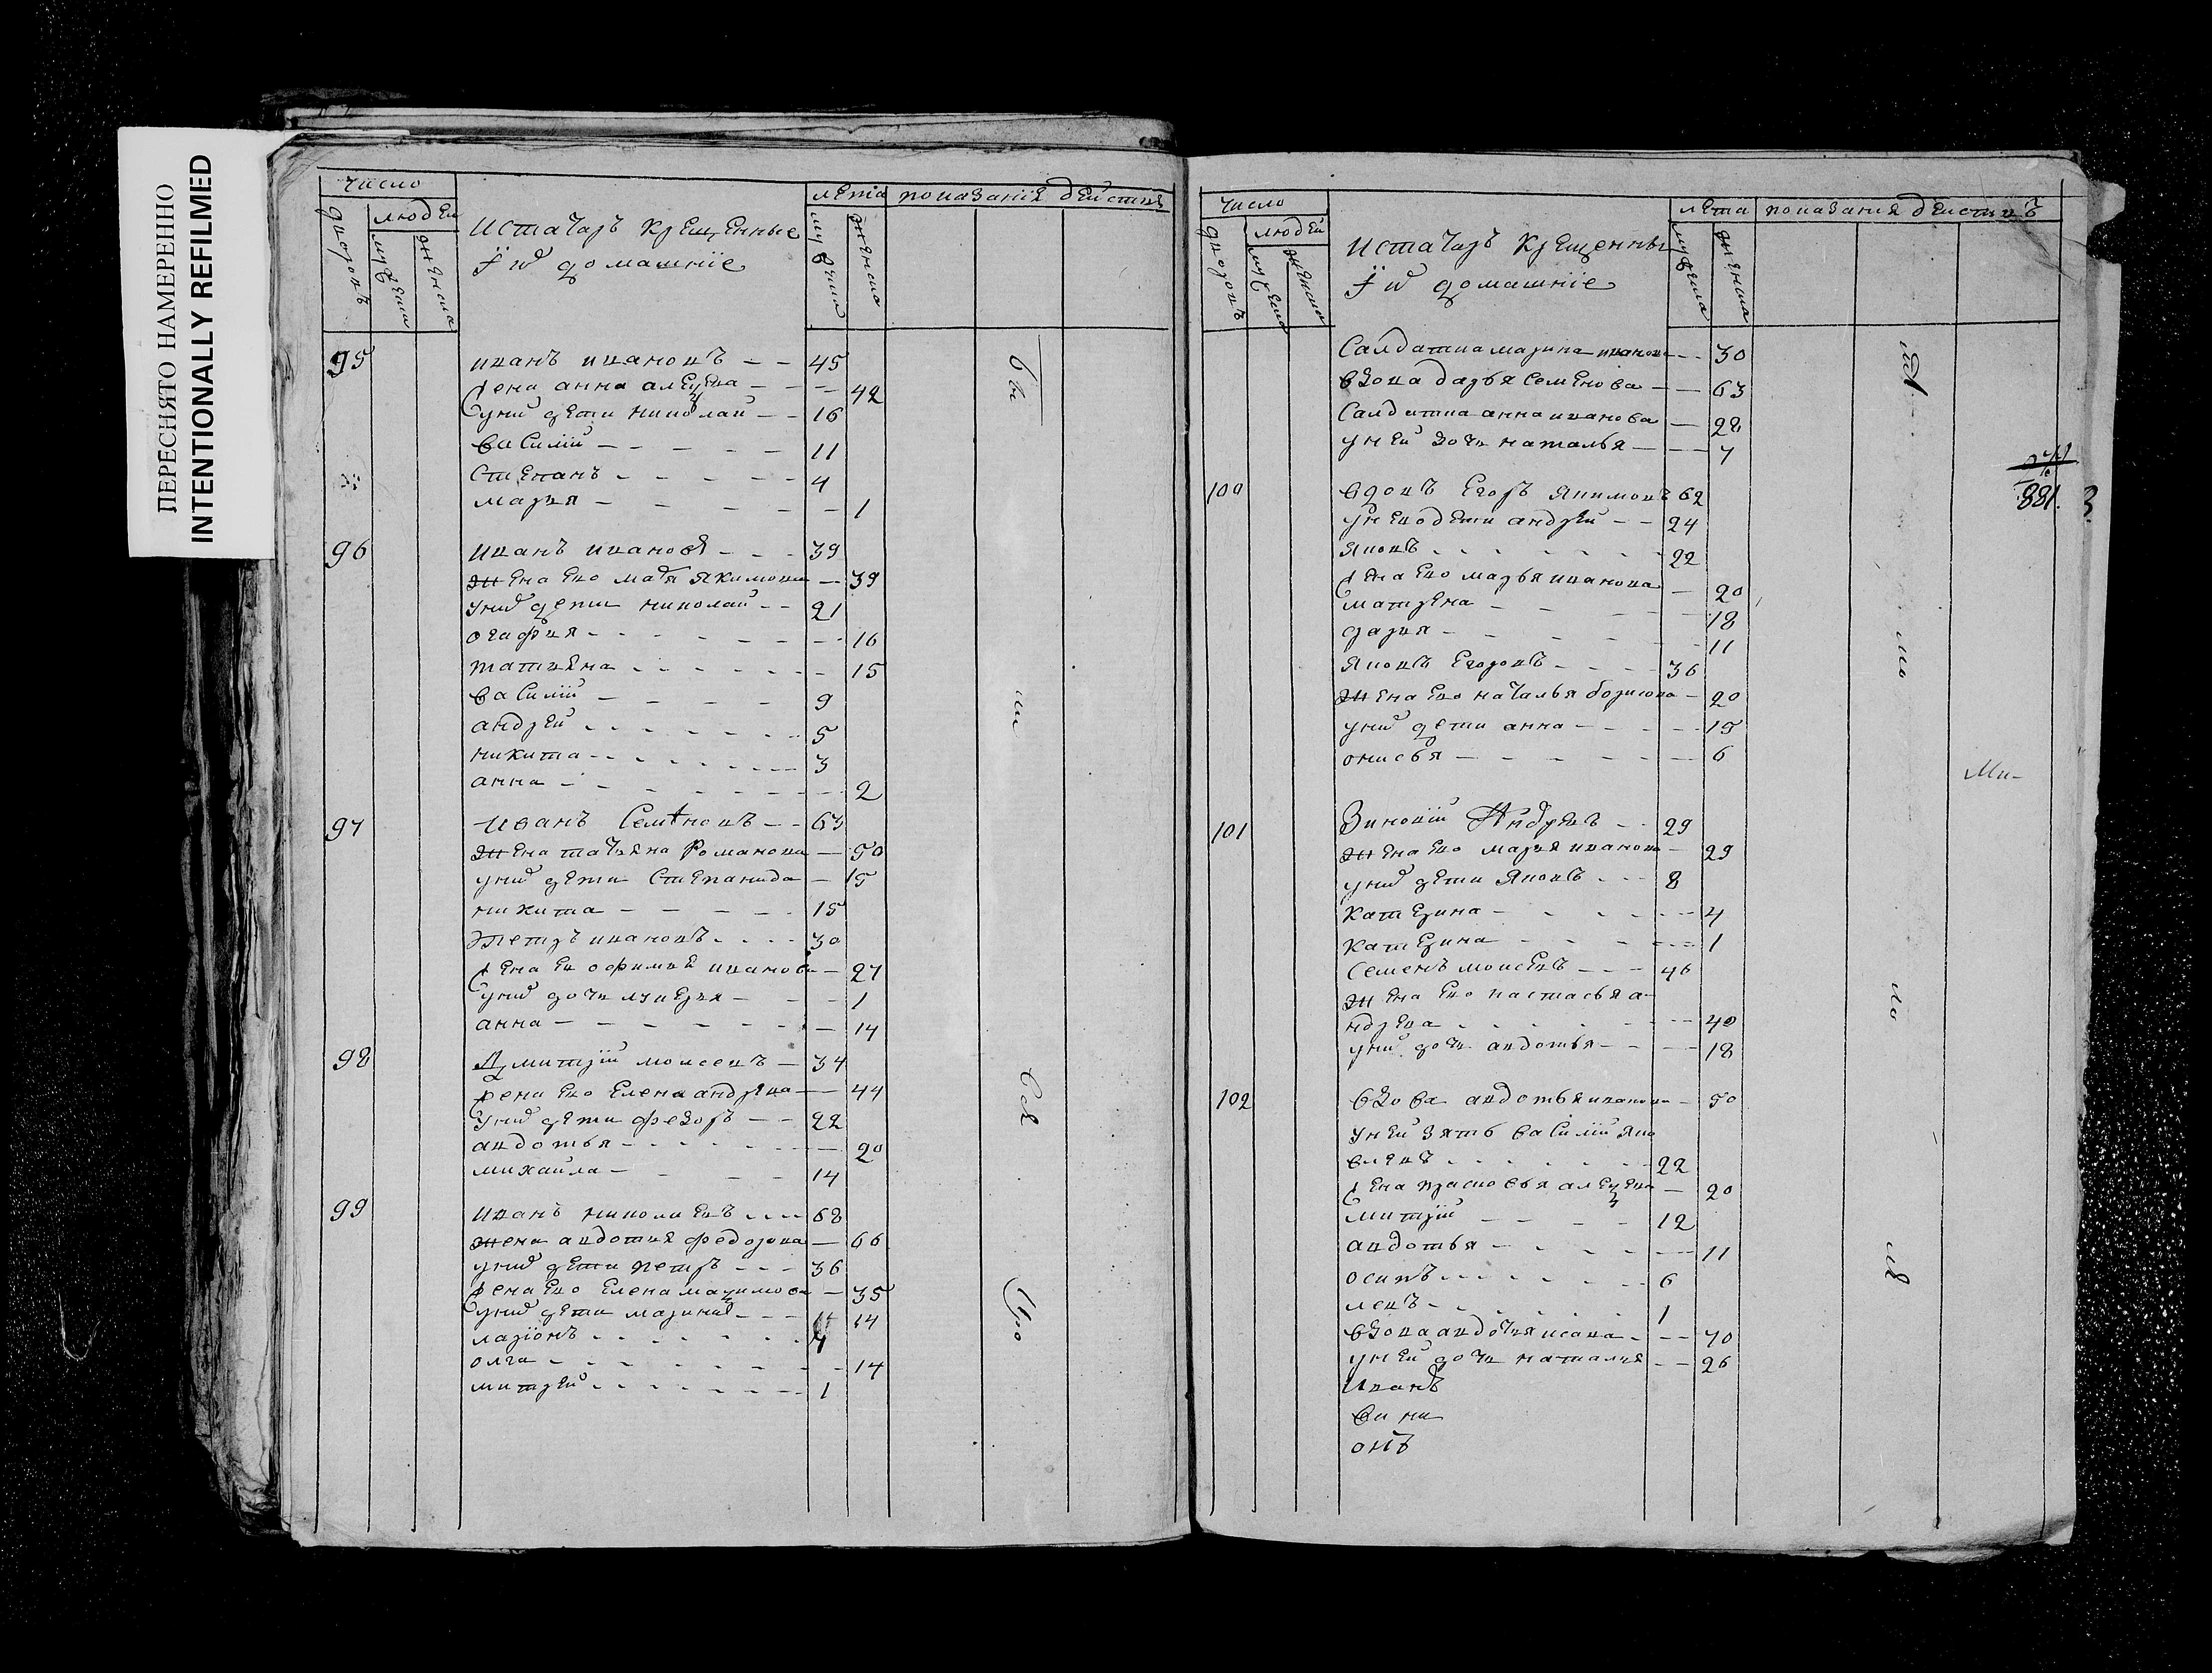 ПЕРЕСНЯТО НАМЕРЕННО
INTENTIONALLY REFILMED
число
людей
дворовъ
мужеска
женска
Истатаръ крещенные
ихъ домашние
лета
мужеска
женска
показания действъ
95 иванъ ивановъ 45
жена анна алеѯева 42
унихъ дети николаи 16
василии 11
степанъ 4
мария 1
96 иванъ иванов 39
жена ево якимова 39
унихъ дети николаи 21
огафия 16
татияна 15
василии 9
андреи 5
никита 3
анна 2
97 иванъ Семеновъ 63
жена татияна Романова 50
унихъ дети степанида 15
никита 15
петръ ивановъ 30
жена ев офимия иванова 27
унихъ дочь лукеря 1
анна 14
98 Дмитрии моисевъ 34
жена ево Елена андрева 44
унихъ дети федоръ 22
авдотья 20
михаила 14
99 иванъ николаевъ 68
жена авдотия федорова 66
унихъ дети петръ 36
жена ево Елена маѯимова 35
унихъ дети марина 14
ларионъ
олга 14
митреи 1
бы
ли
вся
Про
число
людей
дворовъ
мужеска
женска
Истатаръ крещенны
ихъ домашние
лета
мужеска
женска
показания действъ
Салдатка марина иванова 30
вдова дарья семенова 63
Салдатка анна иванова 28
унеи дочь наталья 7
100 вдовъ Егоръ якимовъ 62
унево дети андреи 24
яковъ 22
жена ево марья иванова 20
матрена 18
дария 11
яковъ Егоровъ 36
жена ево наталья борисова 20
унихъ дети анна 15
онисья 6
101 Зиновии Андревъ 29
жена ево мария иванова 29
унихъ дети яковъ 8
катерина 4
катерина 1
семенъ моисевъ 46
жена ево настасья а-
ндрева 40
унихъ дочь авдотья 18
102 вдова авдотья иванова 50
унеи зять василии яко
влевъ 22
жена прасковья алеѯева 20
митрии 12
авдотья 11
осипъ 6
левъ 1
вдова авдотия исава 70
унеи дочь наталия 26
Иванъ
ви ни
онъ
188
3
Ми-